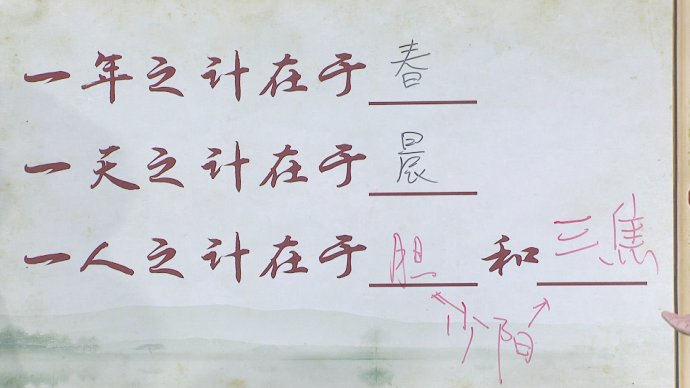 一年之计在于春
一天之计在于晨
一人之计在于胆和三焦
少阳